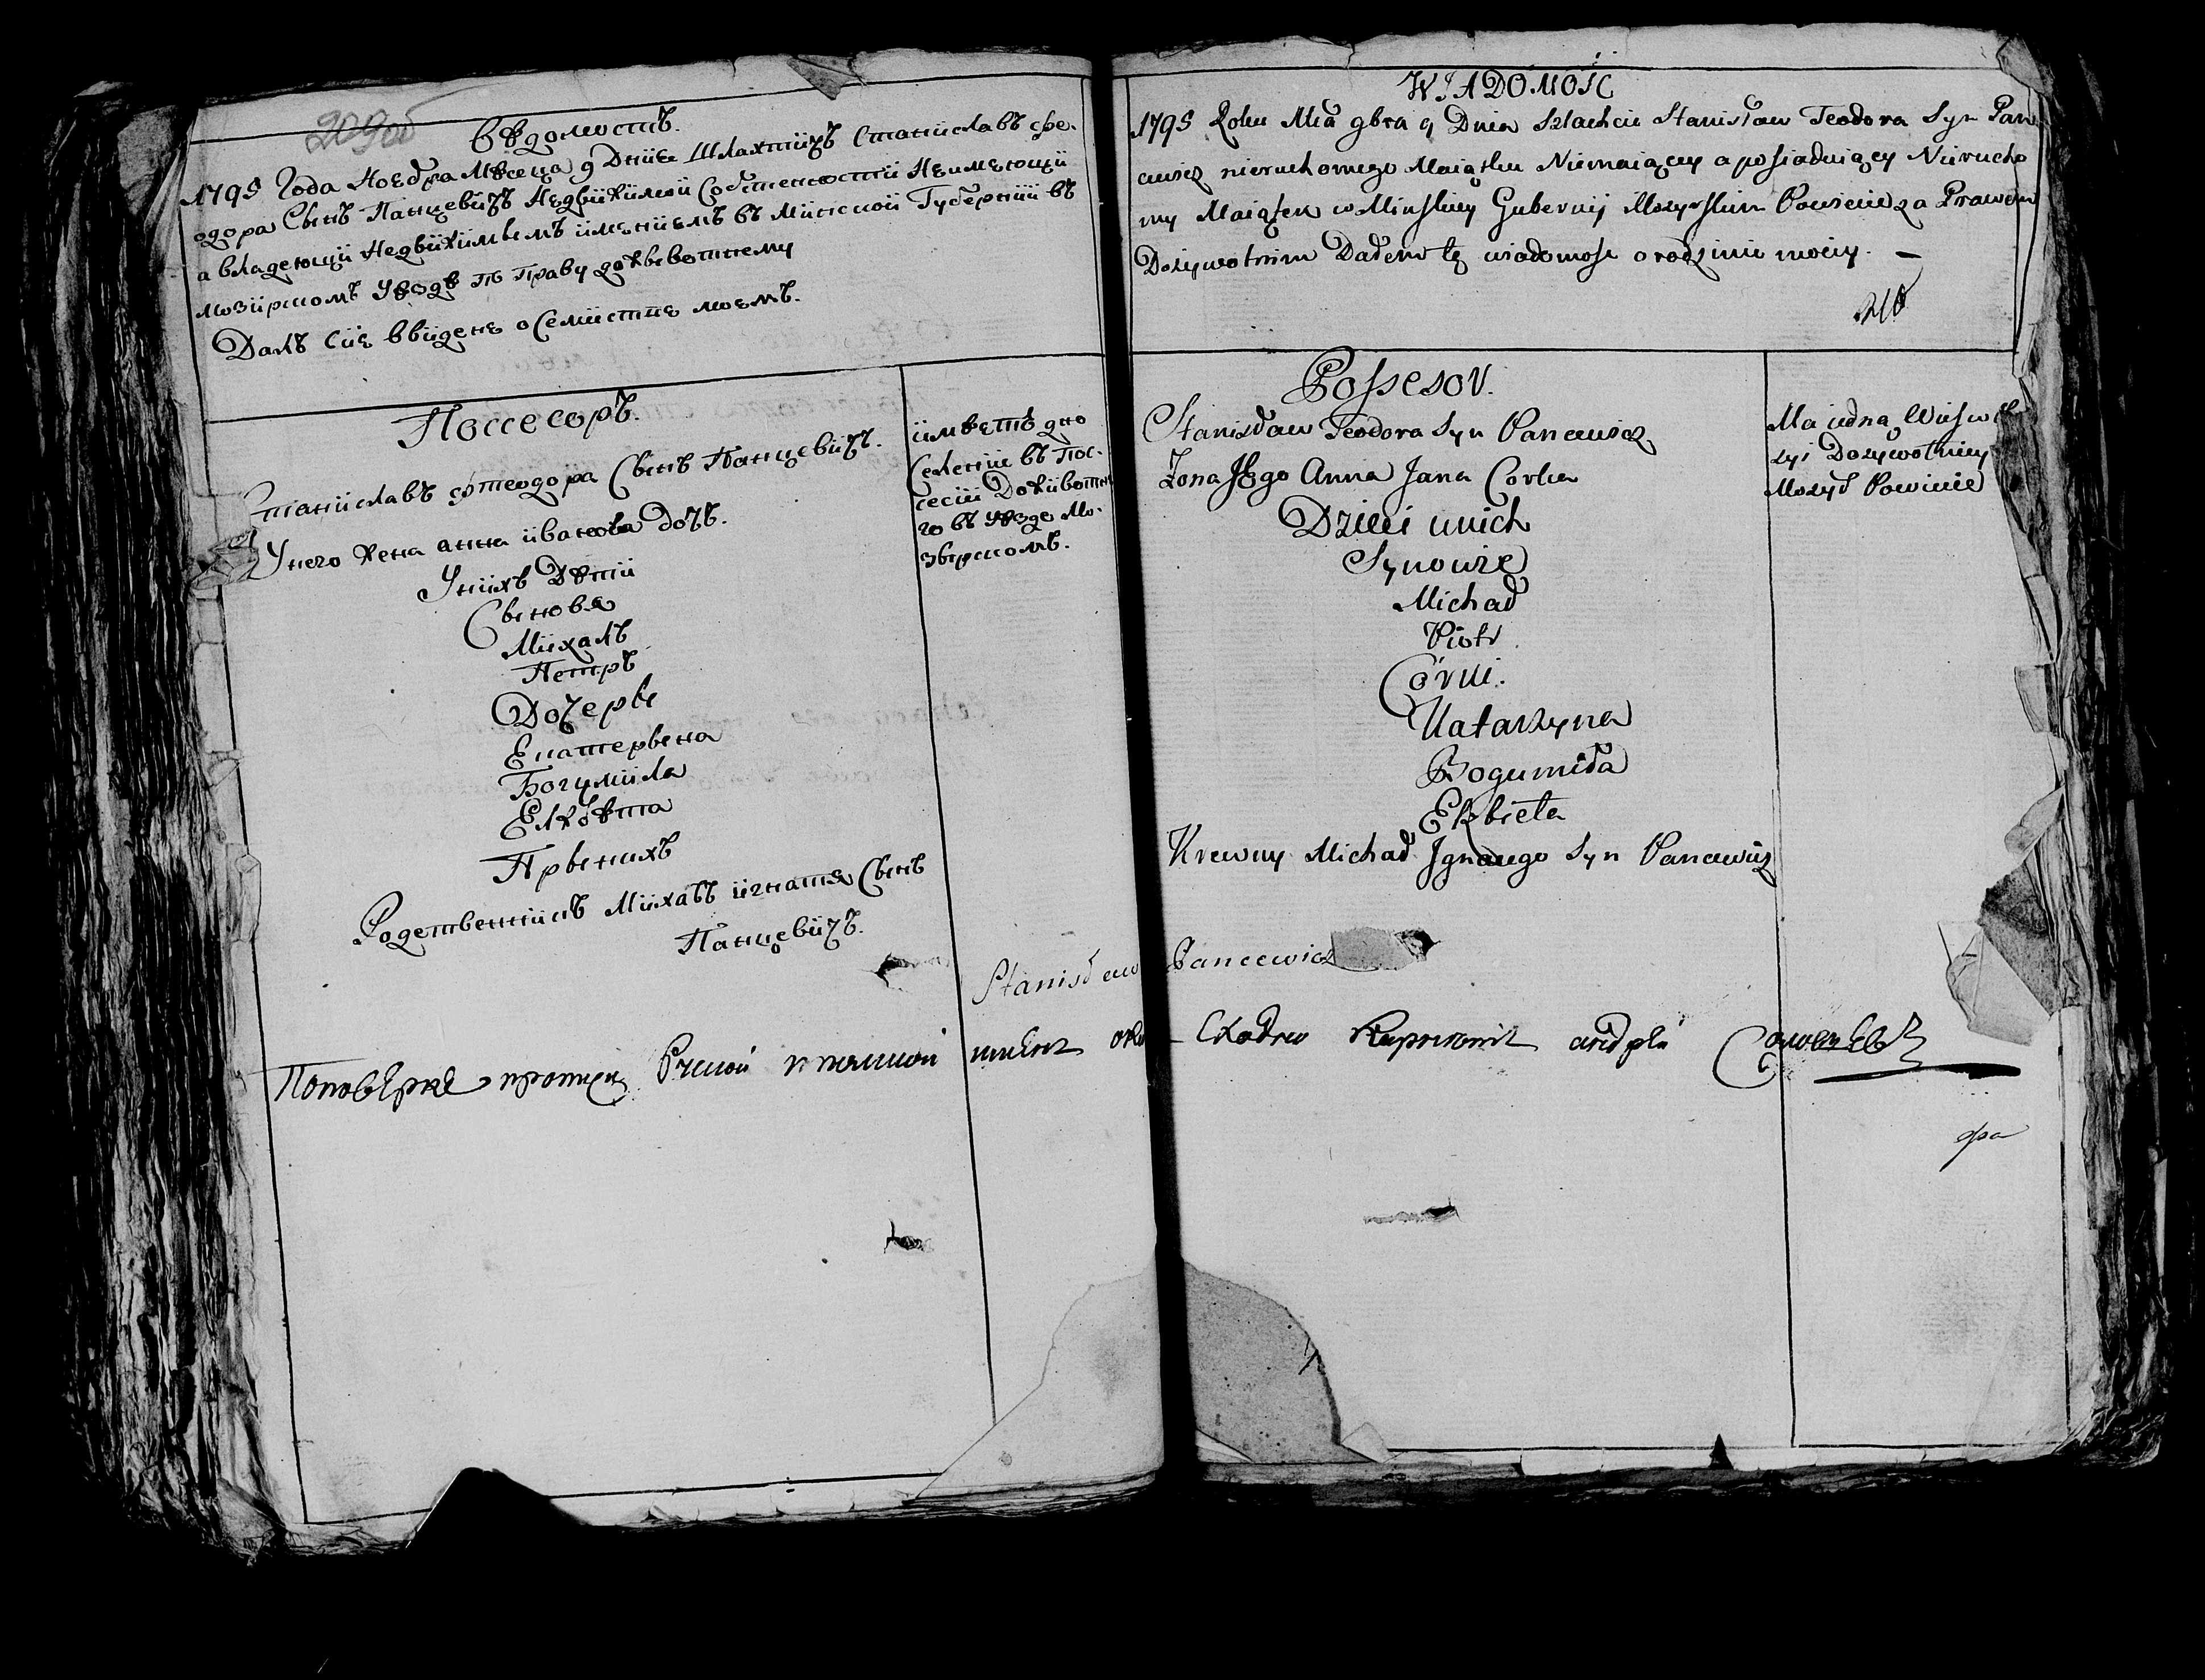 209об
Вѣдомость.
1795 Года Ноебра Мѣсеца 9 Дние Шляхтичъ Станиславъ Фе-
одора Сынъ Панцевичъ Недвижимой Собственности Неимеющи
а владеющи Недвижимымъ имениемъ въ Минской Губернии въ
мозирскомъ Уѣзде По Праву доживотнему
Далъ Сие ввидене о Семистве моемъ.
Поссесоръ.
Станиславъ фтеодора Сынъ Панцевичъ.
Унего жена анна иванова дочь.
Унихъ Дѣти
Сыновя
Михалъ
Петръ
Дочеры
Екатерына
Богумила
Елжбѣта
Прыжнихъ
Родственникъ Михалъ игнатя Сынъ
Панцевичъ.
имѣетъ дно
Селение въ Пос-
сесии Доживотн
го въ уѣзде Мо-
зырскомъ.
WIADOMOSC
1795 Roku Mca 9bra 9 Dnia Szlachcic Stanisław Teodora Syn Pan
cewicz nieruchomego Maiątku Niemaiący a posiadaiący Nierucho
my Maiątek w Minskiey Gubernij Mozyrskim Powiecie za Prawem
Dozywotnim Dałem tę wiadomosc o rodzinie moiey. —
210
Possesor.
Stanisław Teodora Syn Pancewicz
Zona Jego Anna Jana Corka
Dzieci unich
Synowie
Michał
Piotr
Córki.
Katarzyna
Bogumiła
Elzbieta
Krewny Michał Jgnacego Syn Pancewicz
Ma iedną Wies w
syi Dozywotniey
Mozyr Powiecie
Stanisław Pancewicz
Поповѣрке противу